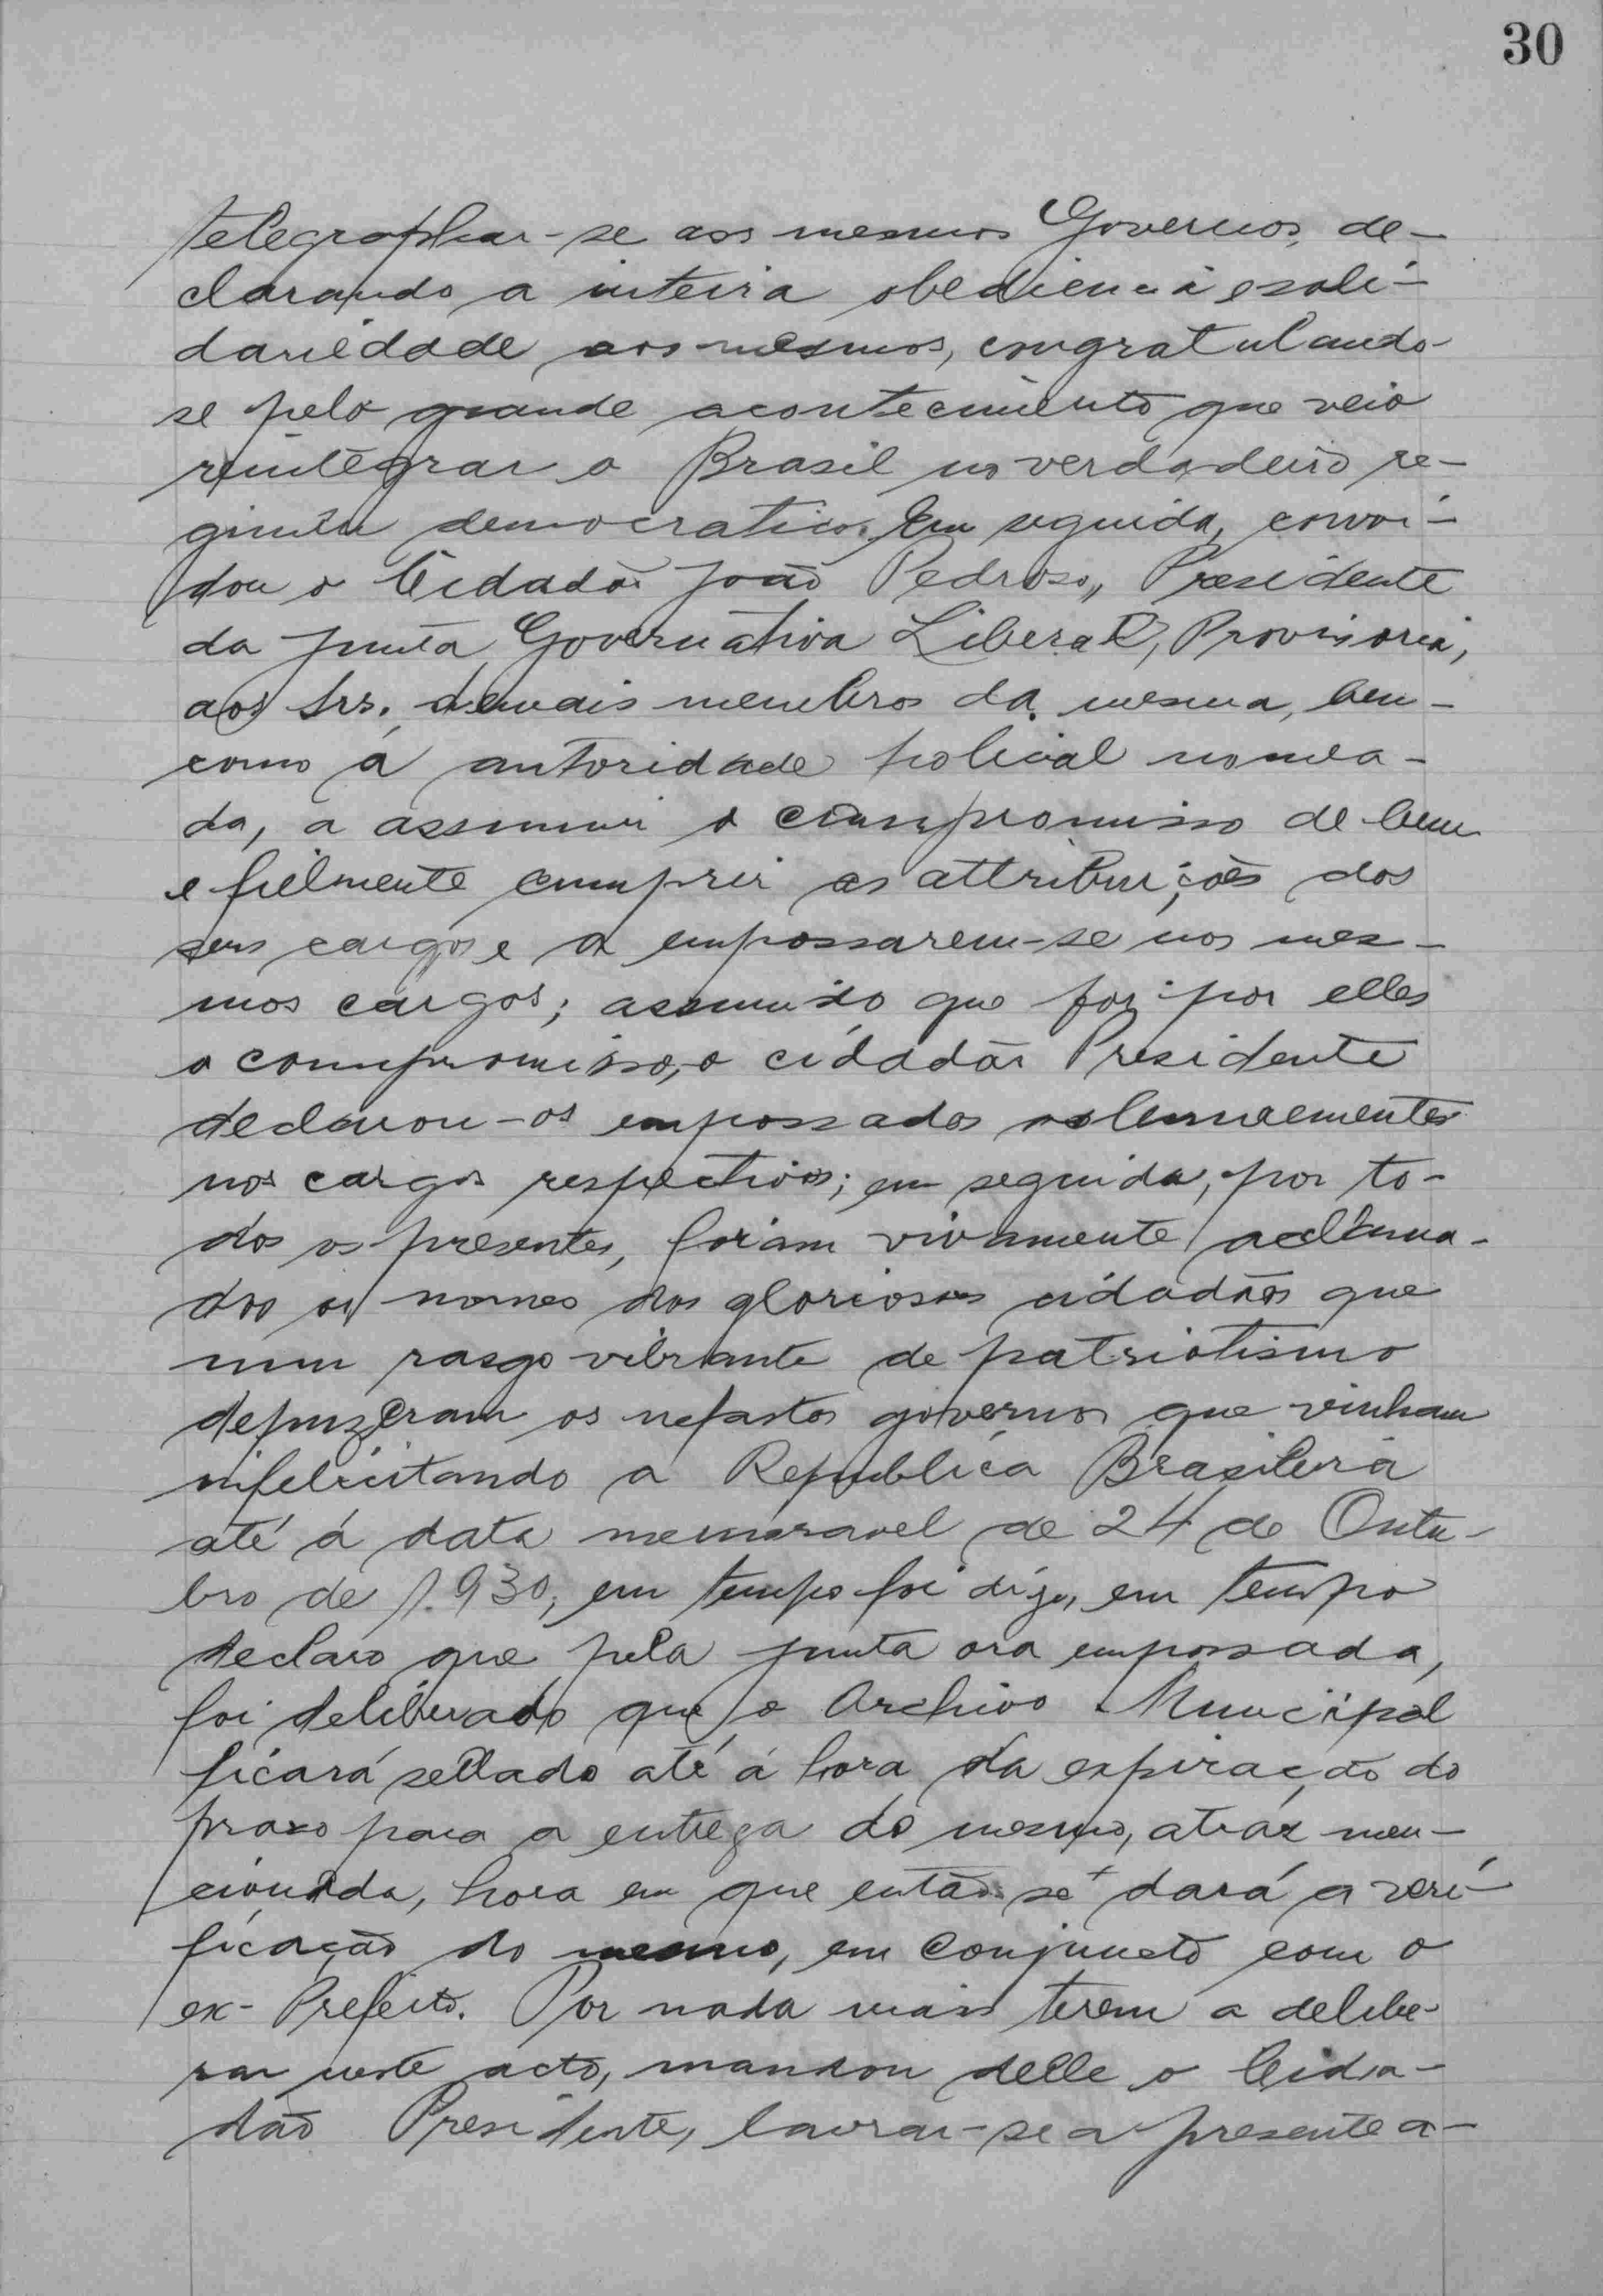 30
telegraphar-se aos mesmos Governos, de-
clarando a inteira obediencia e soli-
dariedade aos mesmos, congratulando-
se pelo grande acontecimento que veio
reintegrar o Brasil no verdadeiro re-
gimen democratico. Em seguida, convi-
dou o Cidadão João Pedroso, Presidente
da Junta Governativa Liberal, Provisoria,
aos Srs. demais membros da mesma, bem-
como á autoridade policial nomea-
da, a assumir o compromisso de bem
e fielmente cumprir as attribuições dos
seus cargos e a empossarem-se nos mes-
mos cargos; assumido que foi por elles
o compromisso, o cidadão Presidente
declarou-os empossados solemnemente
nos cargos respectivos; em seguida, por to-
dos os presentes, foram vivamente acclama-
dos os nomes dos gloriosos cidadãos que
num rasgo vibrante de patriotismo
depuzeram os nefastos governos que vinham
infelicitando a Republica Brasileira
até á data memoravel de 24 de Outu-
bro de 1.930; em tempo foi digo, em tempo
declaro que pela junta ora empossada,
foi deliberado que o Archivo Municipal
ficará sellado até á hora da expiração do
praso para a entrega do mesmo, atraz men-
cionada, hora em que então se dará a veri-
ficação do mesmo, em conjuncto com o
ex-Prefeito. Por nada mais terem a delibe-
rar neste acto, mandou delle o Cida-
dão Presidente, lavrar-se a presente a-